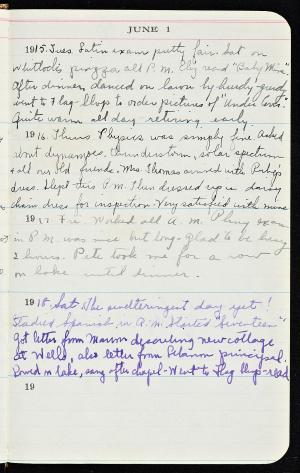 JUNE 1
1915. Tues. Latin exam pretty fair. Sat on
Whittlock's piazza all P.M. Eliz read "Baby Mine".
After dinner, danced on lawn by hurdy-gurdy
went to Flag-llwps to order pictures of "Under Cover".
Quite warm all day - retiring early.
1916. Thurs. Physics was simply fine. Asked
about dynamoes, thunderstorm, solar spectrum
& all our old friends. Mrs. Thomas arrived with
dress. Slept this P.M. Then dressed up in
dress for inspection. Very satisfied with mine
1917 Fri. Worked all A.M. exam
in P.M. was nice but long - glad to be
2 hours. Pete took me for a row
on lake until dinner.
1918. Sat. The swelteringest day yet!
Studied Spanish in A.M. Started "Seventeen"
Got letter from Marion describing new cottage
at Wells, also letter from Lebanon principal.
Rowed on lake, sang after chapel - Went to Flag llwps - read
19